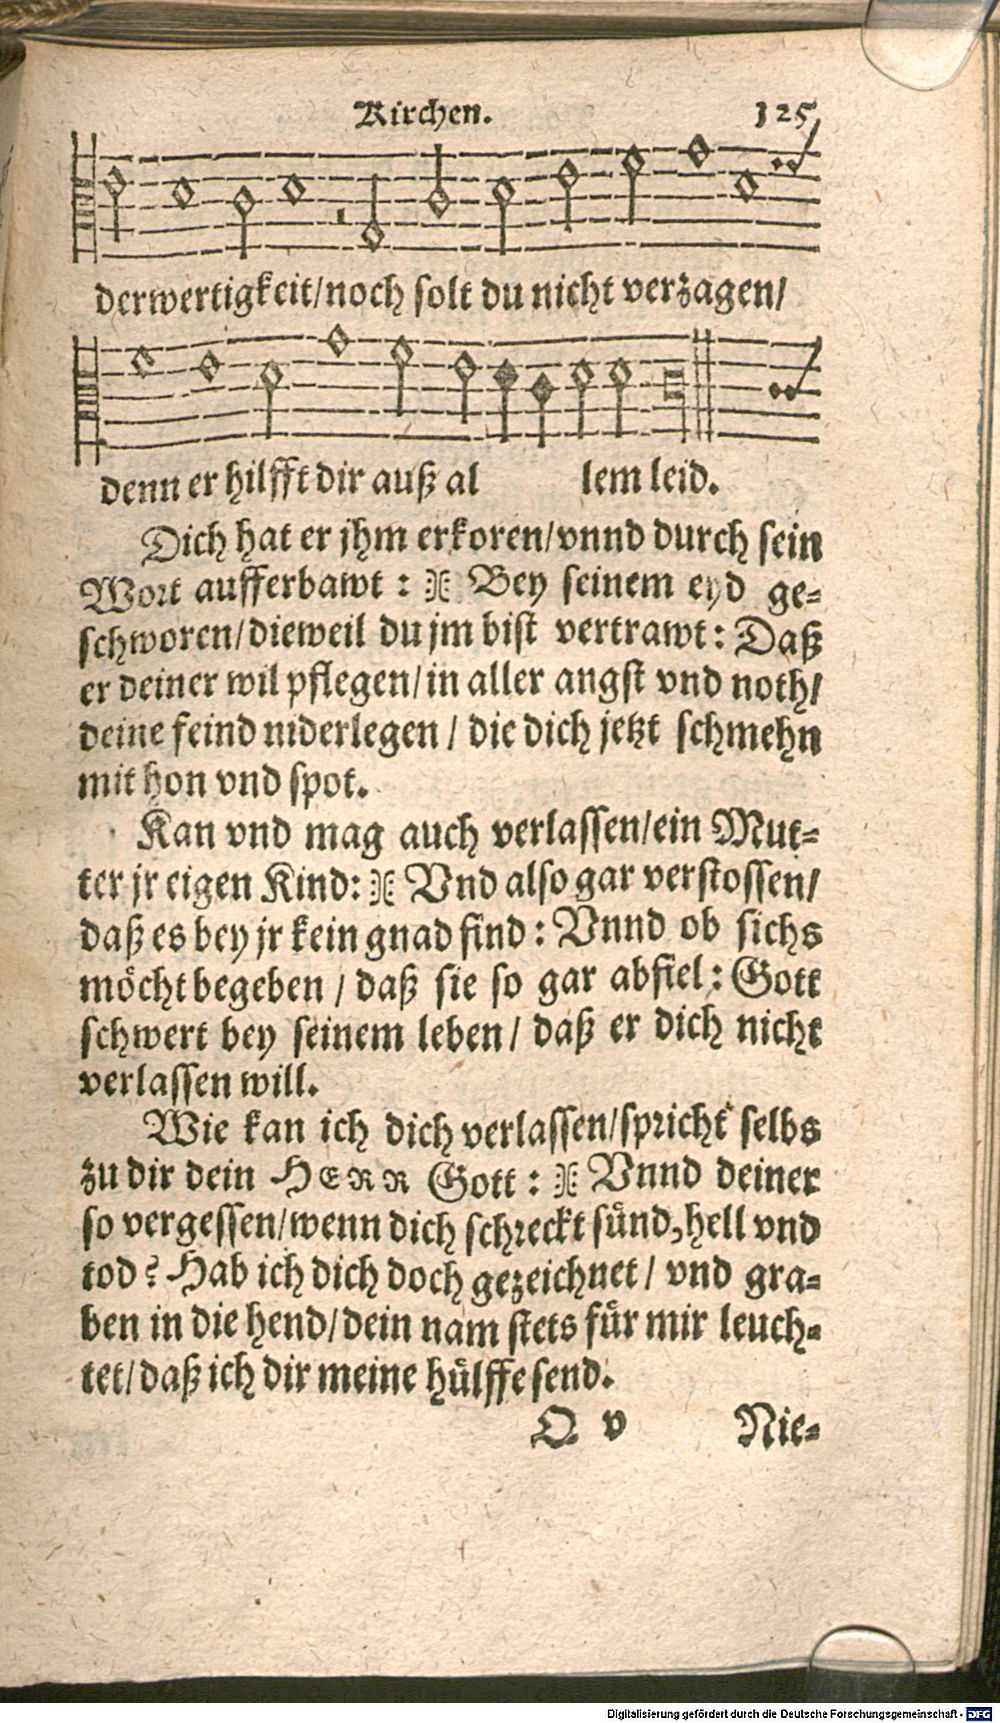 Kirchen. 125
derwertigkeit/noch solt du nicht verzagen/
denn er hilfft dir auß al lem leid.
Dich hat er jhm erkoren/vnnd durch sein
Wort aufferbawt : Bey seinem eyd ge=
schworen/dieweil du jm bist vertrawt: Daß
er deiner wil pflegen/in aller angst vnd noth/
deine feind niderlegen / die dich jetzt schmehn
mit hon vnd spot.
Kan vnd mag auch verlassen/ein Mut=
ter jr eigen Kind: Vnd also gar verstossen/
daß es bey jr kein gnad find : Vnnd ob sichs
möcht begeben / daß sie so gar abfiel: Gott
schwert bey seinem leben/ daß er dich nicht
verlassen will.
Wie kan ich dich verlassen/spricht selbs
zu dir dein HERR Gott : Vnnd deiner
so vergessen/wenn dich schreckt sünd, hell vnd
tod? Hab ich dich doch gezeichnet/ vnd gra=
ben in die hend/dein nam stets für mir leuch=
tet/daß ich dir meine hülffe send.
Q v Nie=
Digitalisierung gefördert durch die Deutsche Forschungsgemeinschaft - DFG